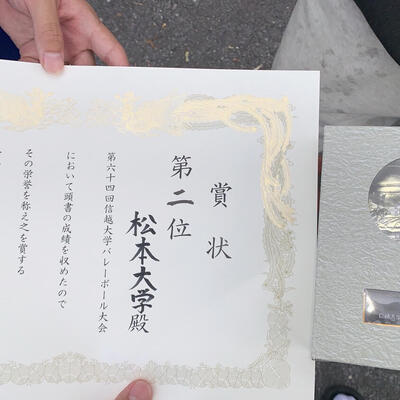 賞状
第二位
松本大学殿
第六十四回信越大学バレーボール大会
において頭書の成績を収めたので
その栄誉を称え之を賞する